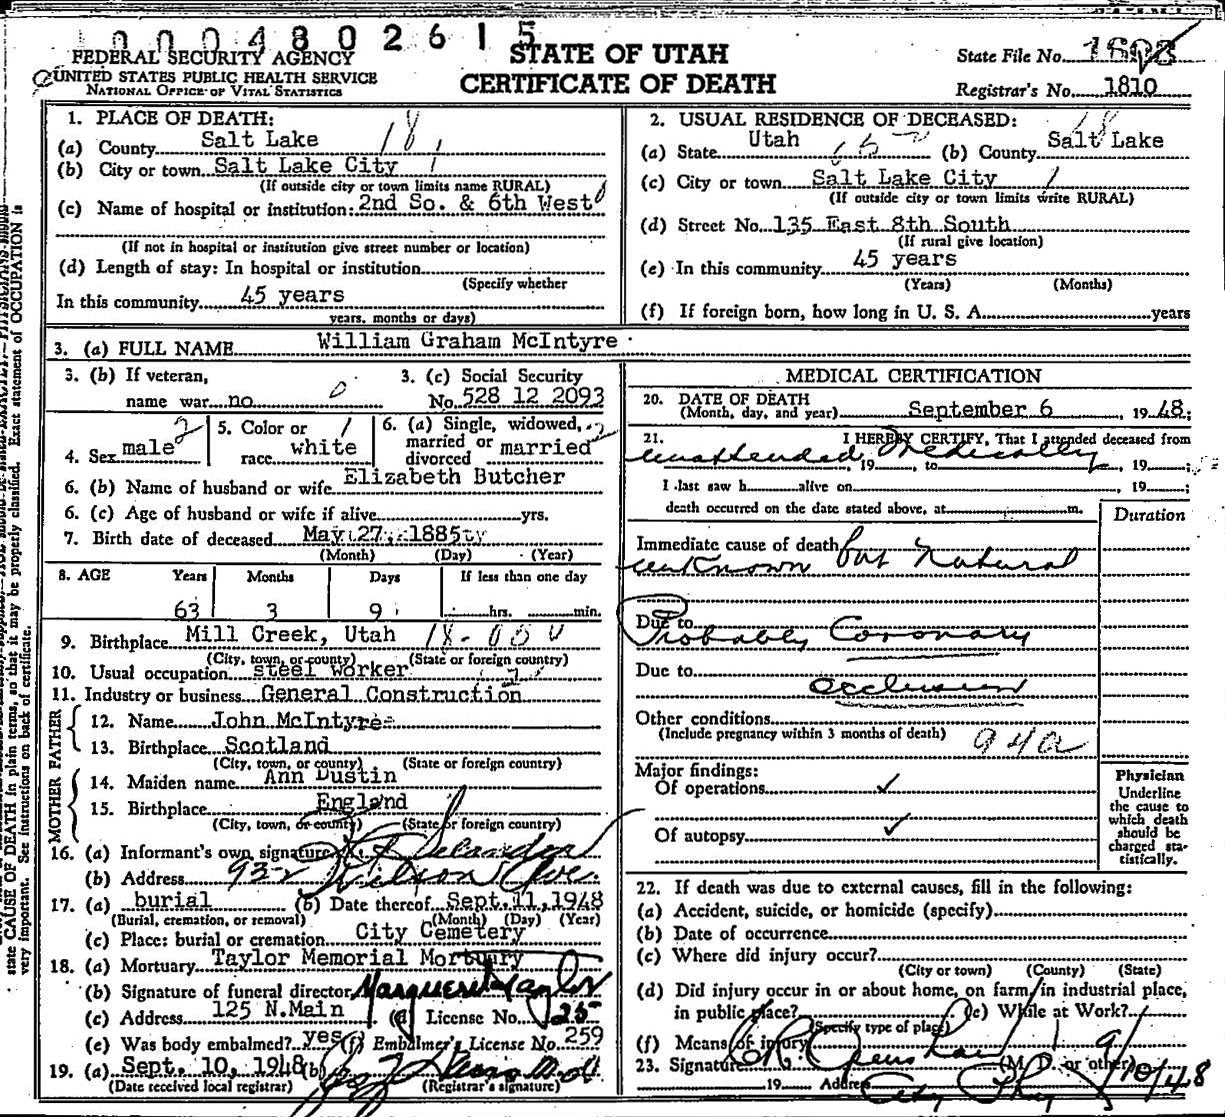 0004802615
FEDERAL SECURITY AGENCY
UNITED STATES PUBLIC HEALTH SERVICE
NATIONAL OFFICE OF VITAL STATISTICS
STATE OF UTAH
CERTIFICATE OF DEATH
State File No.
Registrar's No. 1810
1. PLACE OF DEATH:
(a) County Salt Lake 18 1
(b) City or town Salt Lake City 1
(If outside city or town limits name RURAL)
(c) Name of hospital or institution: 2nd So. & 6th West
(If not in hospital or institution give street number or location)
(d) Length of stay: In hospital or institution
(Specify whether
In this community 45 years
years, months or days)
2. USUAL RESIDENCE OF DECEASED:
(a) State Utah (b) County Salt Lake 18
(c) City or town Salt Lake City 1
(If outside city or town limits write RURAL)
(d) Street No. 135 East 8th South
(If rural give location)
(e) In this community 45 years
(Years) (Months)
(f) If foreign born, how long in U. S. A. years
3. (a) FULL NAME William Graham McIntyre
3. (b) If veteran,
name war no 0
3. (c) Social Security
No. 528 12 2093
4. Sex male 2
5. Color or
race white 1
6. (a) Single, widowed,
married or
divorced married 2
6. (b) Name of husband or wife Elizabeth Butcher
6. (c) Age of husband or wife if alive yrs.
7. Birth date of deceased May 27, 1885
(Month) (Day) (Year)
8. AGE Years Months Days If less than one day
63 3 9 hrs. min.
9. Birthplace Mill Creek, Utah
(City, town, or county) (State or foreign country)
10. Usual occupation steel worker
11. Industry or business General Construction
FATHER
12. Name John McIntyre
13. Birthplace Scotland
(City, town, or county) (State or foreign country)
MOTHER
14. Maiden name Ann Dustin
15. Birthplace England
(City, town, or county) (State or foreign country)
16. (a) Informant's own signature
(b) Address 932 Wilson Ave.
17. (a) burial (b) Date thereof Sept. 11, 1948
(Burial, cremation, or removal) (Month) (Day) (Year)
(c) Place: burial or cremation City Cemetery
18. (a) Mortuary Taylor Memorial Mortuary
(b) Signature of funeral director Marguerite Taylor
(c) Address 125 N.Main (d) License No. 25
(e) Was body embalmed? yes (f) Embalmer's License No. 259
19. (a) Sept. 10, 1948 (b)
(Date received local registrar) (Registrar's signature)
MEDICAL CERTIFICATION
20. DATE OF DEATH
(Month, day, and year) September 6 1948;
21. I HEREBY CERTIFY, That I attended deceased from
unattended medically, 19 to , 19 ;
I last saw h alive on , 19 ;
death occurred on the date stated above, at m.
Duration
Immediate cause of death but Natural
unknown
Due to
Probably Coronary
Due to
occlusion
Other conditions
(Include pregnancy within 3 months of death) 94a
Major findings:
Of operations ✓
Of autopsy ✓
Physician
Underline
the cause to
which death
should be
charged sta-
tistically.
22. If death was due to external causes, fill in the following:
(a) Accident, suicide, or homicide (specify)
(b) Date of occurrence
(c) Where did injury occur?
(City or town) (County) (State)
(d) Did injury occur in or about home, on farm, in industrial place,
in public place? (e) While at Work?
(Specify type of place)
(f) Means of injury
23. Signature (M. D. or other)
19 Address City 9/10/48
state CAUSE OF DEATH in plain terms, so that it may be properly classified. Exact statement of OCCUPATION is
very important. See instructions on back of certificate.